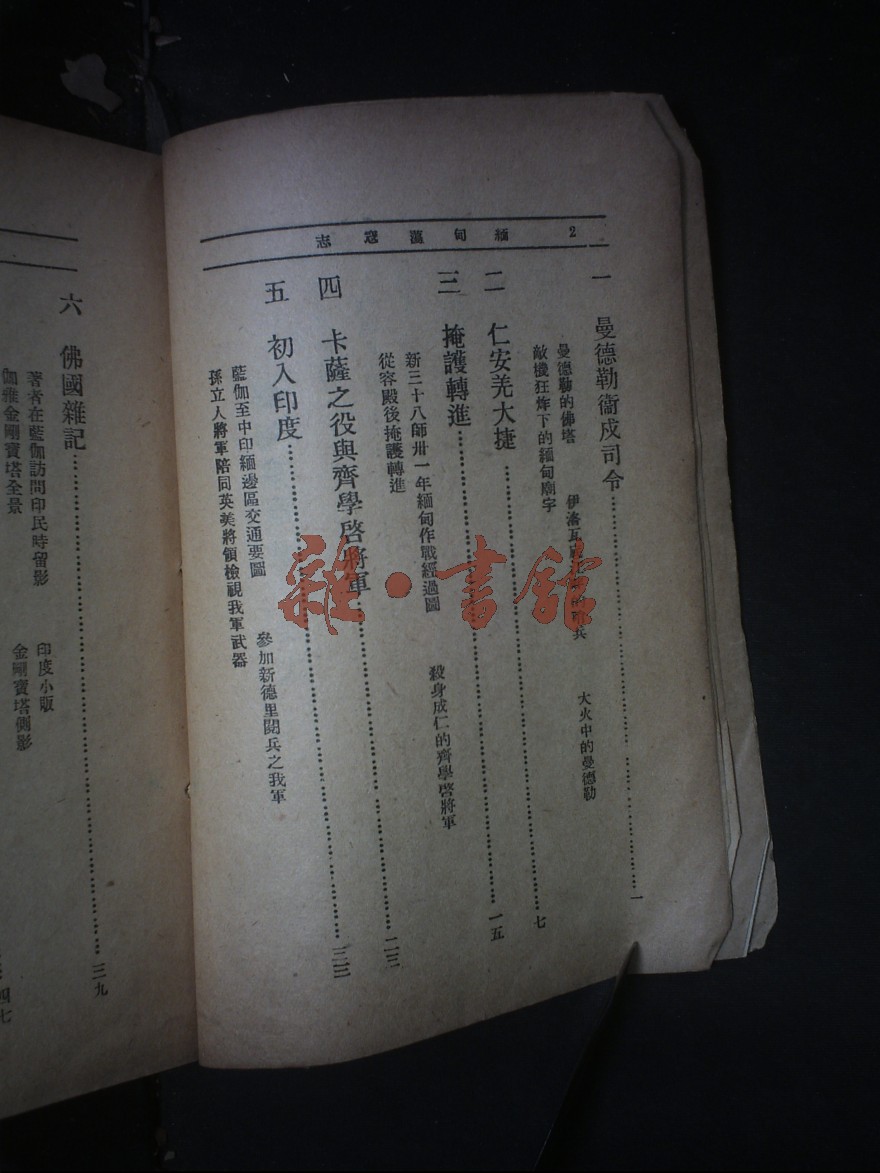 2 緬甸蕩寇志
一 曼德勒衞戍司令……一
曼德勒的佛塔 伊洛瓦 兵 大火中的曼德勒
敵機狂炸下的緬甸廟宇
二 仁安羌大捷……七
三 掩護轉進……一五
新三十八師卅一年緬甸作戰經過圖 殺身成仁的齊學啓將軍
從容殿後掩護轉進
四 卡薩之役與齊學啓將軍……二三
五 初入印度……三三
藍伽至中印緬邊區交通要圖 參加新德里閱兵之我軍
孫立人將軍陪同英美將領檢視我軍武器
六 佛國雜記……三九
著者在藍伽訪問印民時留影 印度小販
伽雅金剛寶塔全景 金剛寶塔側影
四七
雜·書館